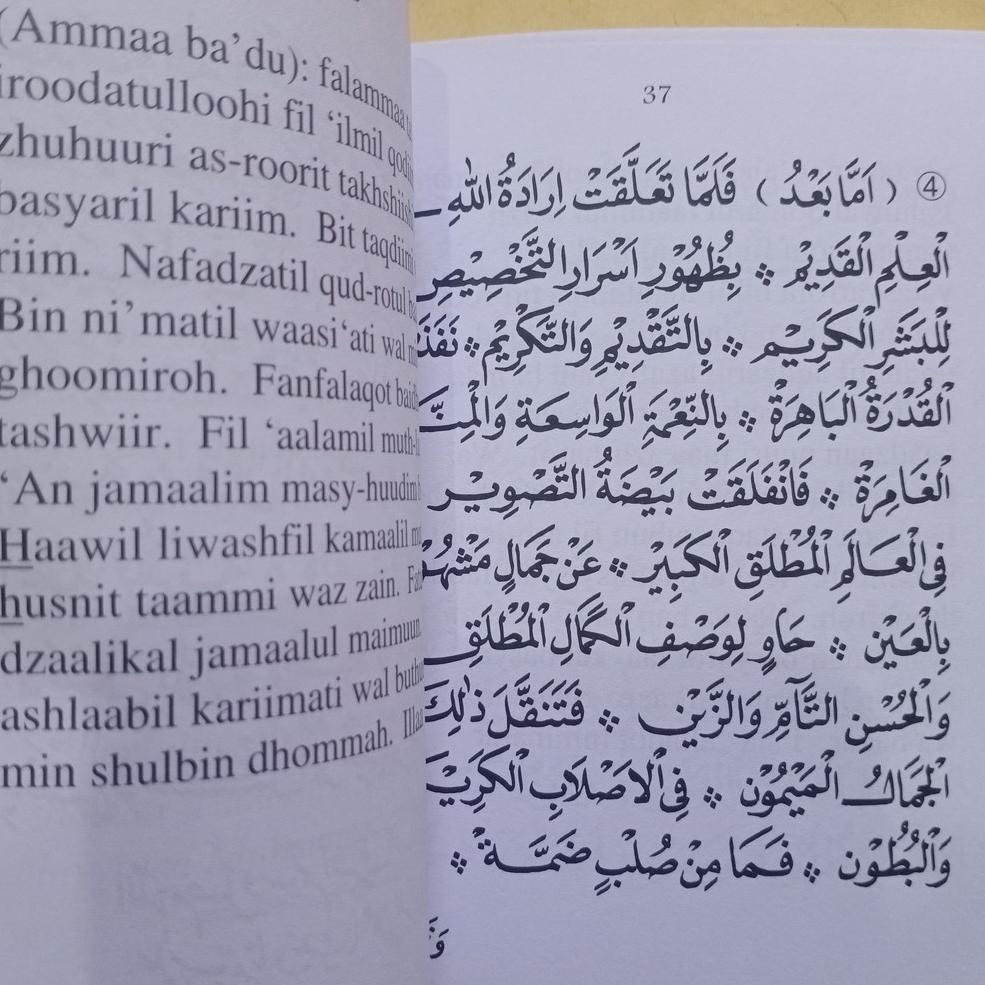 (Ammaa ba’du): falammaa
iroodatulloohi fil ‘ilmil
zhuhuuri as-roorit
basyaril kariim. Bit taqdiimi
riim. Nafadzatil qud-rotul
Bin ni’matil waasi‘ati wal
ghoomiroh. Fanfalaqot
tashwiir. Fil ‘aalamil
‘An jamaalim masy-huudim
Haawil liwashfil kamaalil
husnit taammi waz zain.
dzaalikal jamaalul maimuun.
ashlaabil kariimati wal
min shulbin dhommah.
37
④ ( اَمَّا بَعْدُ ) فَلَمَّا تَعَلَّقَتْ اِرَادَةُ اللهِ
الْعِلْمِ الْقَدِيْمْ ۞ بِظُهُوْرِ اَسْرَارِ التَّخْصِيْصِ
لِلْبَشَرِ الْكَرِيْمْ ۞ بِالتَّقْدِيْمِ وَالتَّكْرِيْمْ ۞
الْقُدْرَةُ الْبَاهِرَةْ ۞ بِالنِّعْمَةِ الْوَاسِعَةِ
الْغَامِرَةْ ۞ فَانْفَلَقَتْ بَيْضَةُ التَّصْوِيْرْ
فِى الْعَالَمِ الْمُطْلَقِ الْكَبِيْرْ ۞ عَنْ جَمَالٍ
بِالْعَيْنْ ۞ حَاوٍ لِوَصْفِ الْكَمَالِ الْمُطْلَقِ
وَالْحُسْنِ التَّآمِّ وَالزَّيْنِ ۞ فَتَنَقَّلَ ذٰلِكَ
الْجَمَالُ الْمَيْمُوْنْ ۞ فِى الْاَصْلَابِ
وَالْبُطُوْنْ ۞ فَمَا مِنْ صُلْبٍ ضَمَّةْ ۞